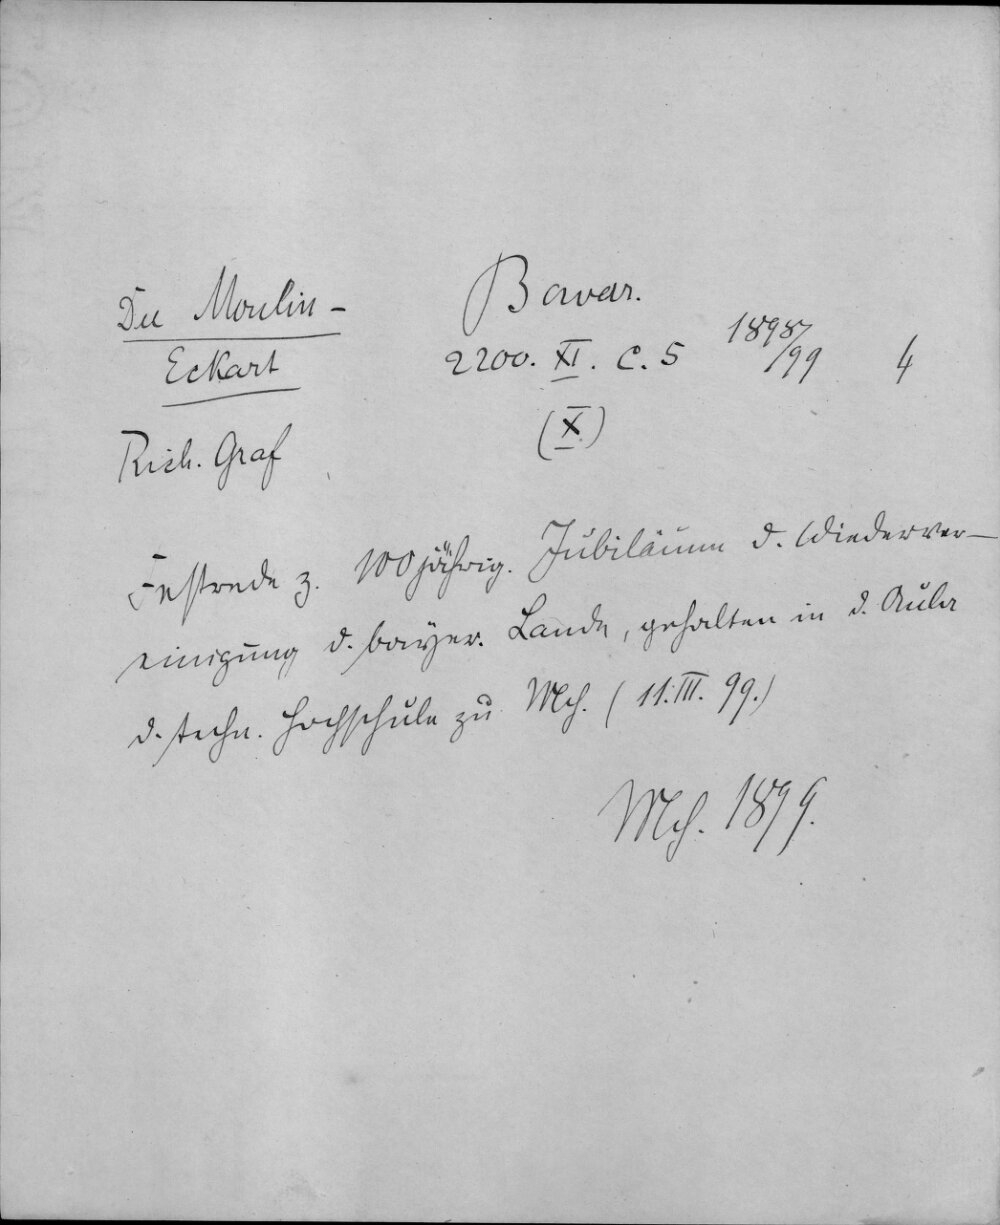 Du Moulin-
Eckart
Rich. Graf
Bavar.
2200. XI. C. 5 1898/99 4
(X)
Festrede z. 100jährig. Jubiläum d. Wiederver-
einigung d. bayer. Lande, gehalten in d. Aula
d. techn. Hochschule zu Mch. (11. III. 99.)
Mch. 1899.